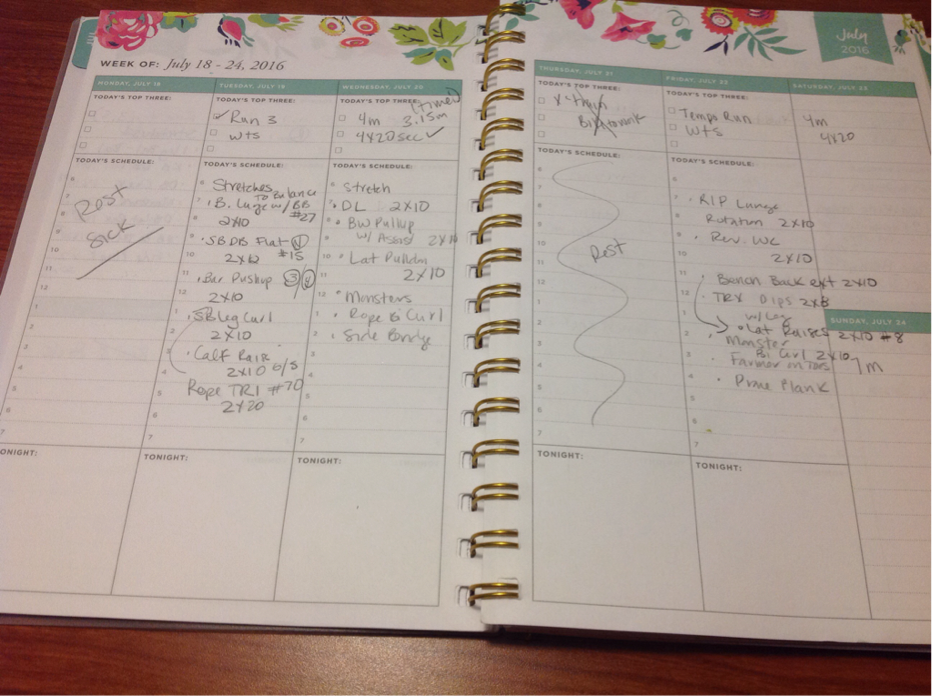 WEEK OF: July 18 - 24, 2016
MONDAY, JULY 18
TODAY'S TOP THREE:
TODAY'S SCHEDULE:
6
7
8
9
10
11
12
1
2
3
4
5
6
7
Rest
Sick
TONIGHT:
TUESDAY, JULY 19
TODAY'S TOP THREE:
Run 3
Wts
TODAY'S SCHEDULE:
Stretches
To Balance
B. Lunge w/ BB
#27
2x10
SB DB Flat
#15
2x12
Bar Pushup 3
2x10
SB Leg Curl
2x10
Calf Rair
2x10 e/s
Rope TRI #70
2x20
TONIGHT:
WEDNESDAY, JULY 20
TODAY'S TOP THREE:
(timed)
4m 3.15m
4x20sec ✓
TODAY'S SCHEDULE:
Stretch
DL 2x10
BW Pullup
w/ Assist 2x10
Lat Pulldn
2x10
Monsters
Rope Bi Curl
Side Bridge
TONIGHT:
THURSDAY, JULY 21
TODAY'S TOP THREE:
TODAY'S SCHEDULE:
Rest
TONIGHT:
FRIDAY, JULY 22
TODAY'S TOP THREE:
Tempo Run
Wts
TODAY'S SCHEDULE:
RIP Lunge
Rotation 2x10
Rev. WC
2x10
Bench Back ext 2x10
TRX Dips 2x8
w/ Leg
Lat Raises 2x10 #8
Monster
Bi Curl 2x10
Farmer on Toes
Prone Plank
TONIGHT:
July
2016
SATURDAY, JULY 23
4m
4x20
SUNDAY, JULY 24
7m